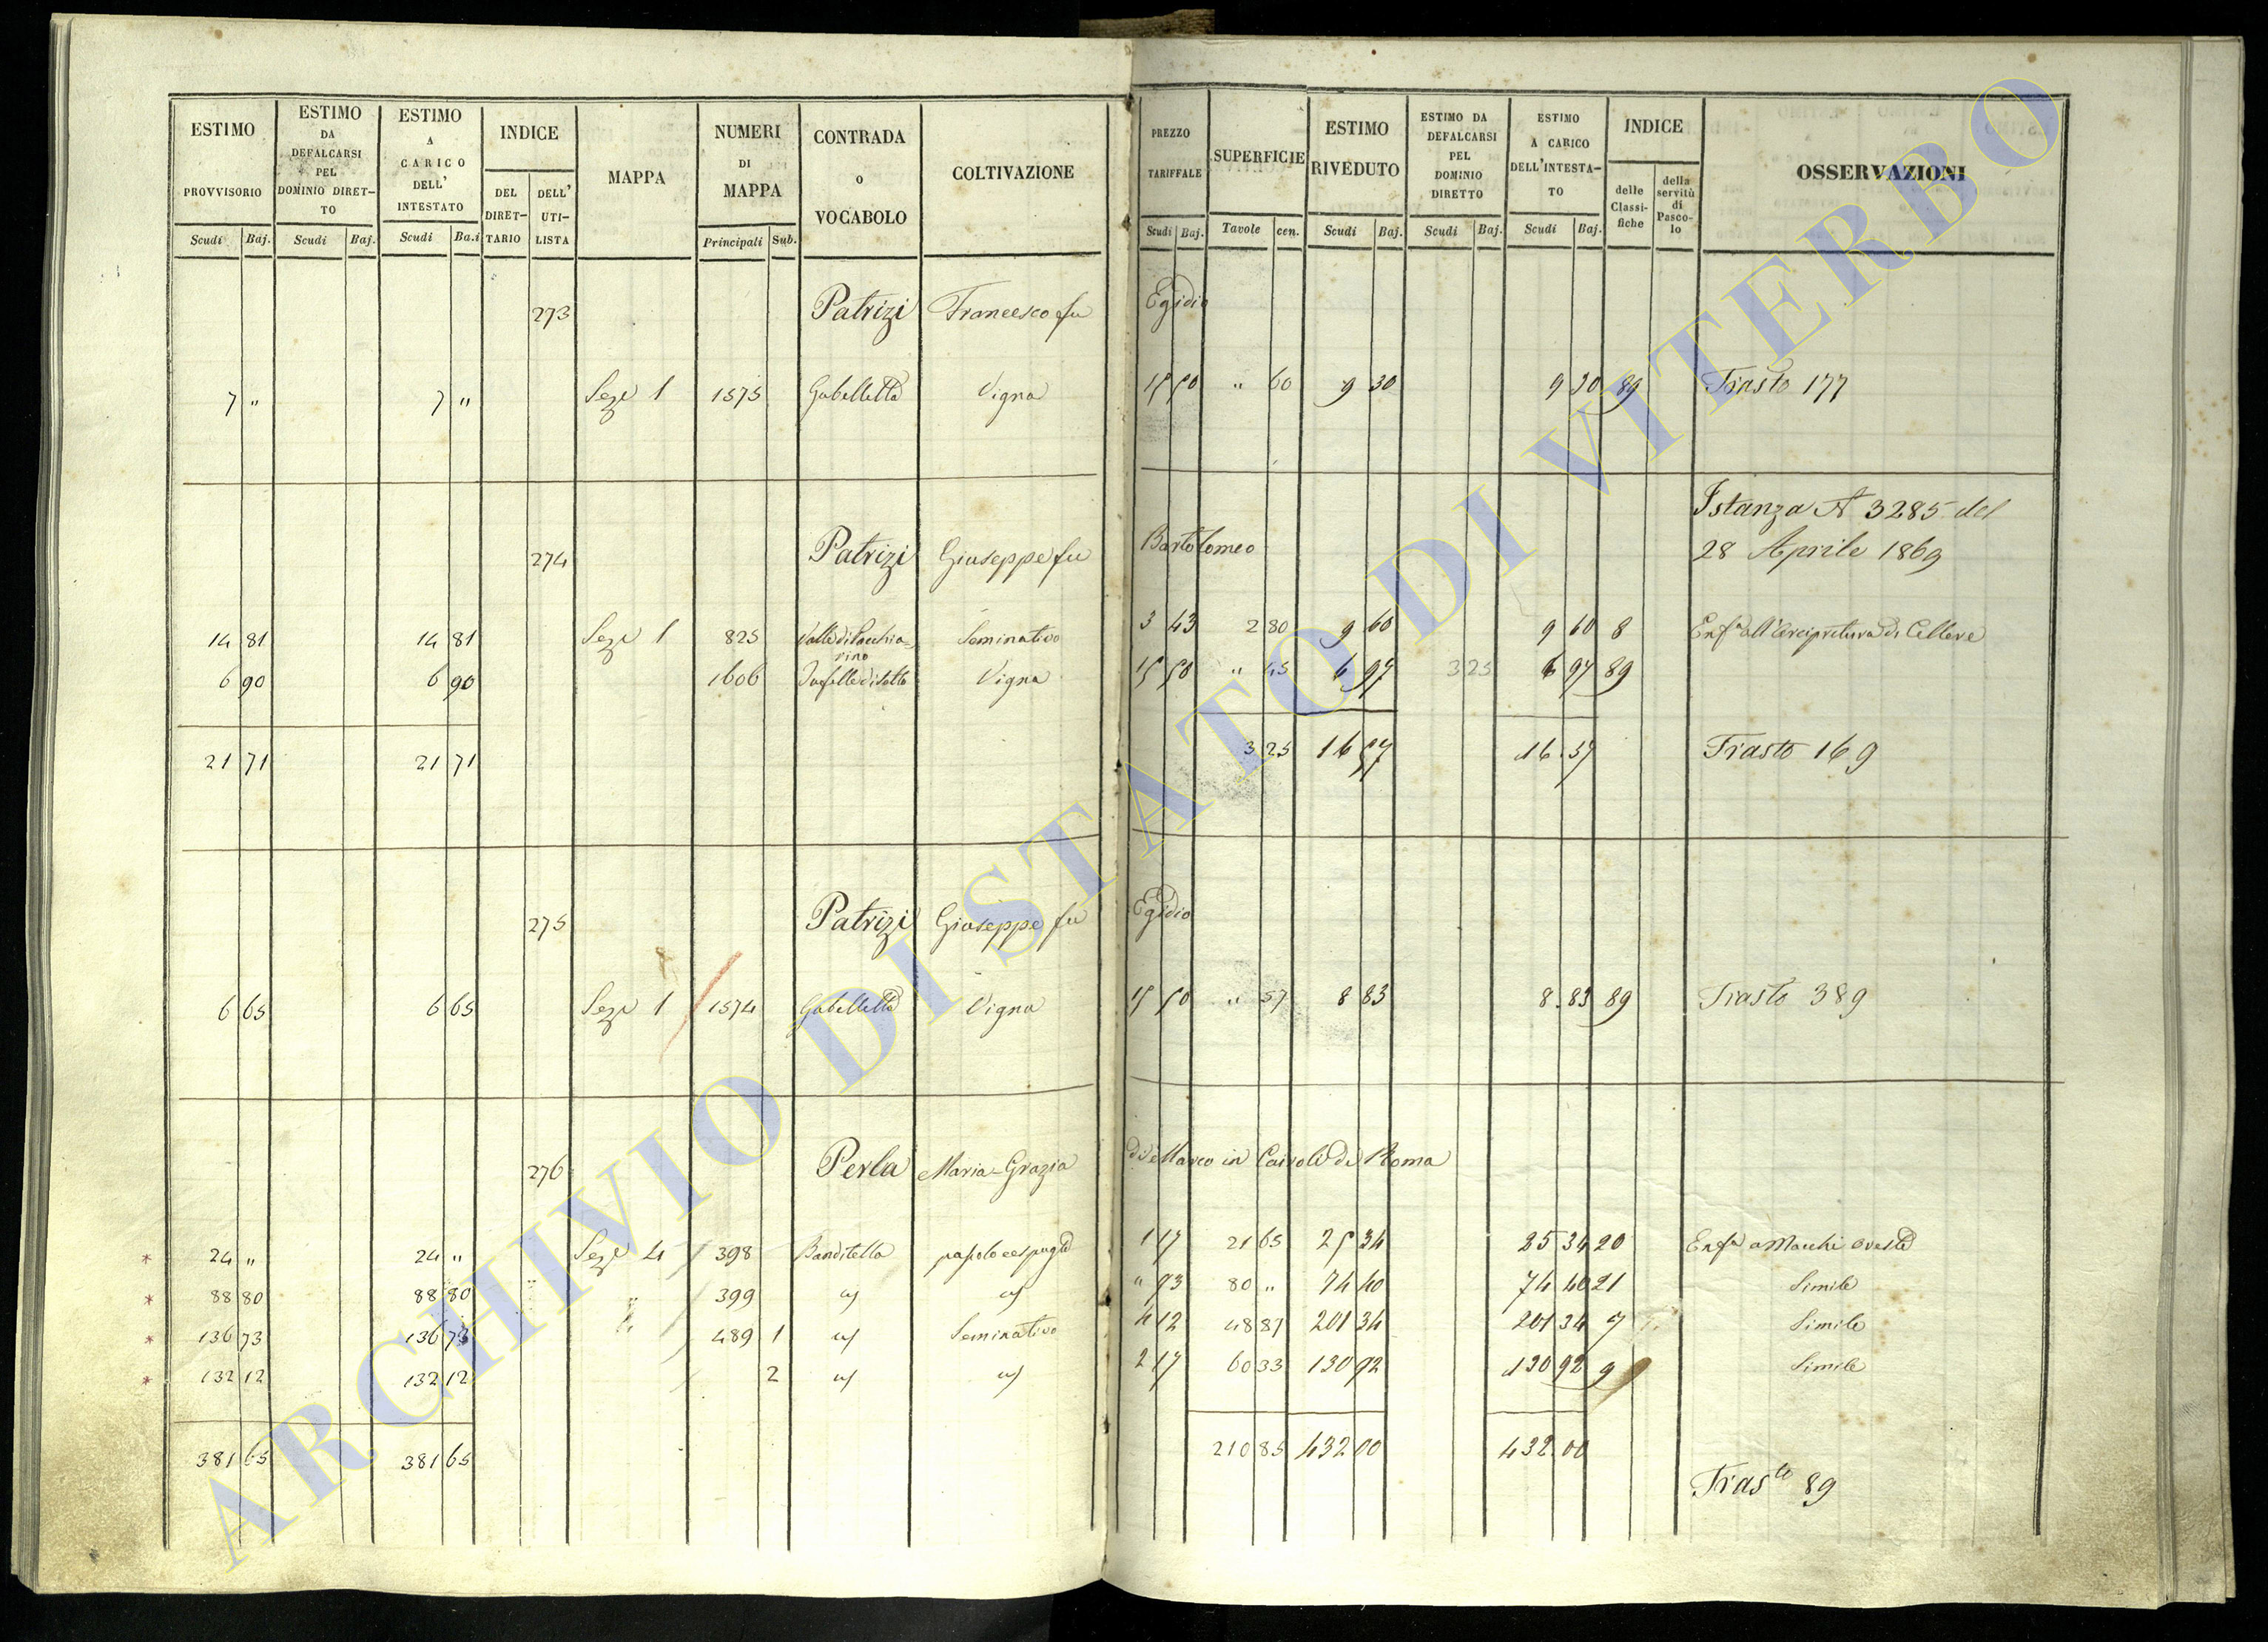 ESTIMO PROVVISORIO
ESTIMO DA DEFALCARSI PEL DOMINIO DIRETTO
ESTIMO A CARICO DELL' INTESTATO
INDICE
DEL DIRETTARIO
DELL' UTILISTA
MAPPA
NUMERI DI MAPPA
CONTRADA o VOCABOLO
COLTIVAZIONE
PREZZO TARIFFALE
SUPERFICIE
ESTIMO RIVEDUTO
ESTIMO DA DEFALCARSI PEL DOMINIO DIRETTO
ESTIMO A CARICO DELL'INTESTATO
INDICE
delle Classifiche
della servitù di Pascolo
OSSERVAZIONI
Scudi Baj. Scudi Baj. Scudi Ba.i Principali Sub. Scudi Baj. Tavole cen. Scudi Baj. Scudi Baj. Scudi Baj.
273 Patrizi Francesco fu Egidio
7 " 7 " Seze 1 1575 Gabelletta Vigna 15 50 " 60 9 30 9 30 89 Trasto 177
Istanza N 3285 del
28 Aprile 1869
274 Patrizi Giuseppe fu Bartolomeo
14 81 14 81 Seze 1 825 Seminativo 3 43 2 80 9 60 9 60 8 Enfa all'Arcipretura di Cellere
6 90 6 90 1606 Vigna 15 50 " 45 6 97 3 25 6 97 89
21 71 21 71 3 25 16 57 16 57 Trasto 169
275 Patrizi Giuseppe fu Egidio
6 65 6 65 Seze 1 1574 Gabelletta Vigna 15 50 " 57 8 83 8 83 89 Trasto 389
276 Perla Maria-Grazia di Marco in Cairoli di Roma
* 24 " 24 " Seze 4 398 Banditella 1 17 21 65 25 34 25 34 20 Enfa a Macchi Oreste
* 88 80 88 80 " 399 " 93 80 " 74 40 74 40 21 Simile
* 136 73 136 73 489 1 Seminativo 4 12 48 87 201 34 201 34 7 Simile
* 132 12 132 12 2 2 17 60 33 130 92 130 92 9 Simile
381 65 381 65 210 85 432 00 432 00
Trasto 89
ARCHIVIO DI STATO DI VITERBO